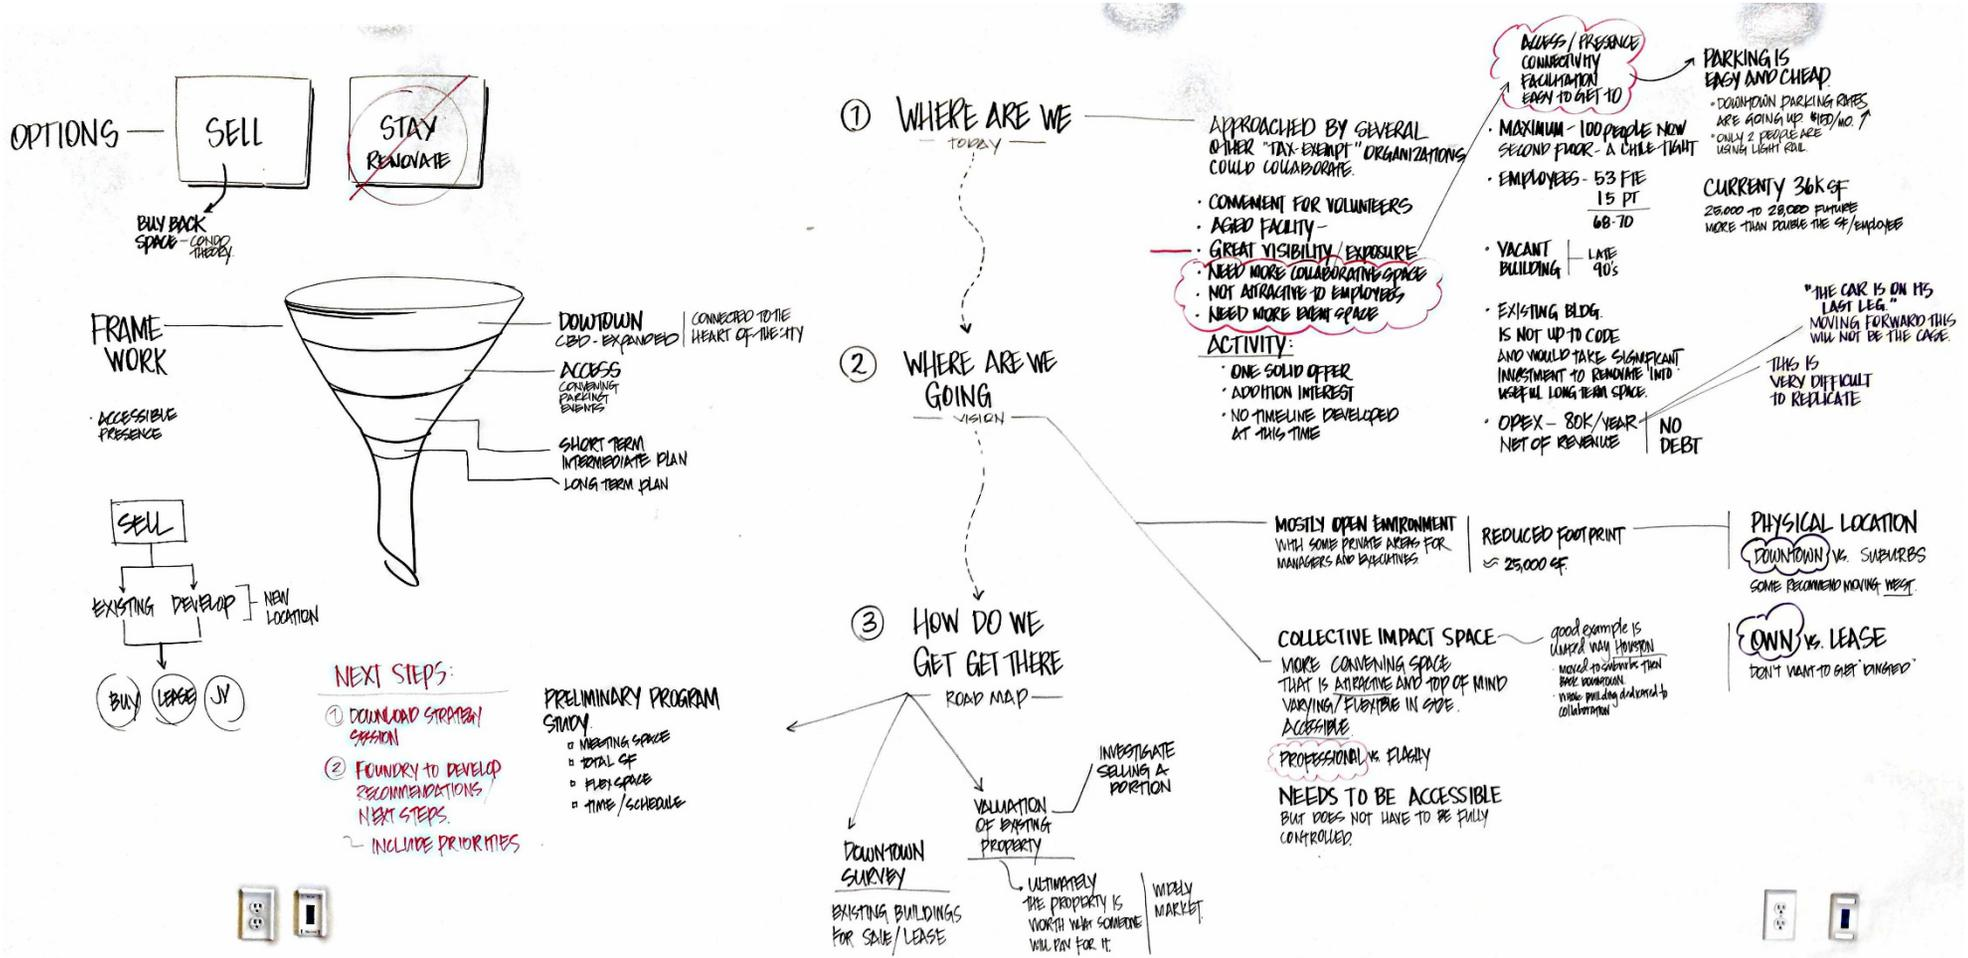 OPTIONS
SELL
STAY
RENOVATE
BUY BACK
SPACE - CONDO
THEORY.
FRAME
WORK
· ACCESSIBLE
PRESENCE
DOWTOWN
CBD - EXPANDED
CONNECTED TO THE
HEART OF THE CITY
ACCESS
CONVENING
PARKING
EVENTS
SHORT TERM
INTERMEDIATE PLAN
LONG TERM PLAN
SELL
EXISTING DEVELOP
NEW
LOCATION
BUY LEASE JV
NEXT STEPS:
① DOWNLOAD STRATEGY
SESSION
② FOUNDRY TO DEVELOP
RECOMMENDATIONS/
NEXT STEPS.
INCLUDE PRIORITIES
PRELIMINARY PROGRAM
STUDY.
MEETING SPACE
TOTAL SF
FLEX SPACE
TIME/SCHEDULE
① WHERE ARE WE
TODAY
② WHERE ARE WE
GOING
VISION
③ HOW DO WE
GET GET THERE
ROAD MAP
DOWNTOWN
SURVEY
EXISTING BUILDINGS
FOR SALE/LEASE
VALUATION
OF EXISTING
PROPERTY
INVESTIGATE
SELLING A
PORTION
ULTIMATELY
THE PROPERTY IS
WORTH WHAT SOMEONE
WILL PAY FOR IT.
WIDELY
MARKET.
APPROACHED BY SEVERAL
OTHER "TAX-EXEMPT" ORGANIZATIONS
COULD COLLABORATE.
· CONVENIENT FOR VOLUNTEERS
· AGED FACILITY -
· GREAT VISIBILITY/EXPOSURE
· NEED MORE COLLABORATIVE SPACE
· NOT ATTRACTIVE TO EMPLOYEES
· NEED MORE EVENT SPACE
ACTIVITY:
· ONE SOLID OFFER
· ADDITION INTEREST
· NO TIMELINE DEVELOPED
AT THIS TIME
ACCESS/PRESENCE
CONNECTIVITY
FACILITATION
EASY TO GET TO
PARKING IS
EASY AND CHEAP.
· DOWNTOWN PARKING RATES
ARE GOING UP. $150/MO.
· ONLY 2 PEOPLE ARE
USING LIGHT RAIL.
· MAXIMUM - 100 PEOPLE NOW
SECOND FLOOR - A
TIGHT
· EMPLOYEES - 53 FTE
15 PT
68-70
CURRENTY 36K SF
25,000 TO 28,000 FUTURE
MORE THAN DOUBLE THE SF/EMPLOYEE
· VACANT
BUILDING
LATE
90's
· EXISTING BLDG.
IS NOT UP TO CODE
AND WOULD TAKE SIGNIFICANT
INVESTMENT TO RENOVATE INTO
USEFUL LONG TERM SPACE.
· OPEX - 80K/YEAR
NET OF REVENUE
NO
DEBT
"THE CAR IS ON ITS
LAST LEG."
MOVING FORWARD THIS
WILL NOT BE THE CASE.
THIS IS
VERY DIFFICULT
TO REPLICATE
MOSTLY OPEN ENVIRONMENT
WITH SOME PRIVATE AREAS FOR
MANAGERS AND EXECUTIVES.
REDUCED FOOTPRINT
≈ 25,000 SF.
PHYSICAL LOCATION
DOWNTOWN VS. SUBURBS
SOME RECOMMEND MOVING WEST.
OWN VS. LEASE
DON'T WANT TO GET "DINGED"
COLLECTIVE IMPACT SPACE
MORE CONVENING SPACE
THAT IS ATTRACTIVE AND TOP OF MIND
VARYING/FLEXIBLE IN SIZE.
ACCESSIBLE.
PROFESSIONAL VS. FLASHY
NEEDS TO BE ACCESSIBLE
BUT DOES NOT HAVE TO BE FULLY
CONTROLLED.
good example is
United Way Houston
· moved to suburbs then
back downtown.
· whole building dedicated to
collaboration